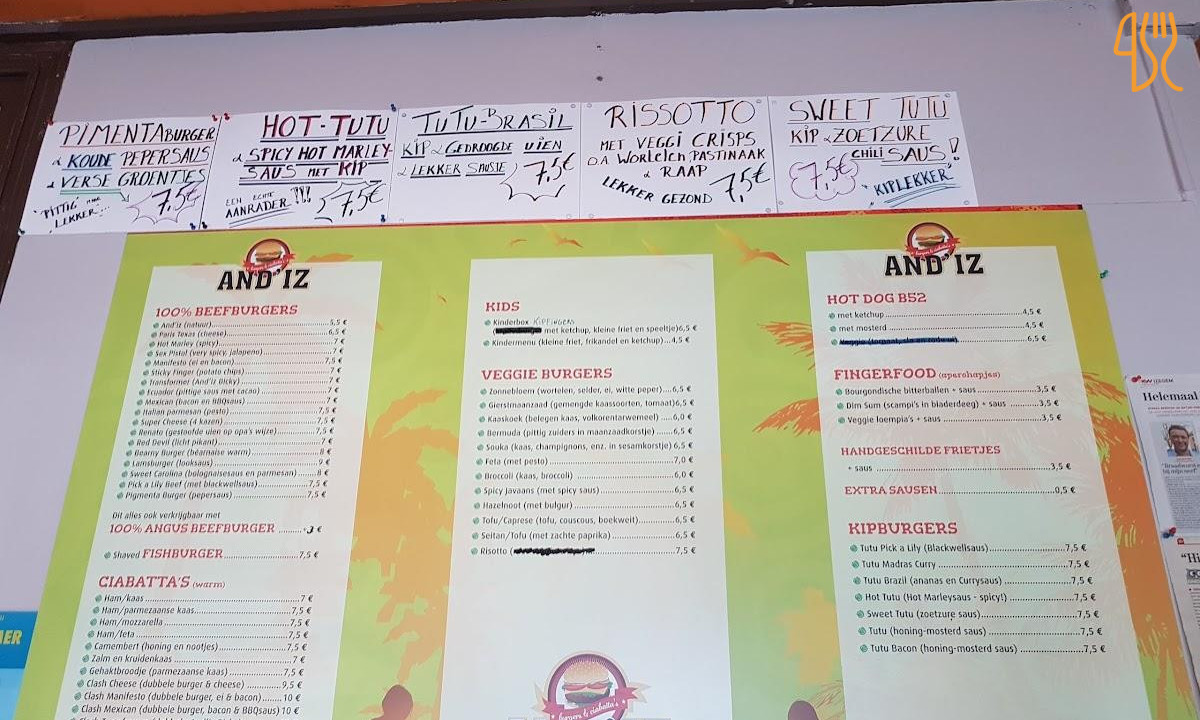 PIMENTABURGER
& KOUDE PEPERSAUS
& VERSE GROENTJES
"PITTIG" maar LEKKER...
7,5€
HOT-TUTU
& SPICY HOT MARLEY-
SAUS MET KIP
EEN ECHTE
AANRADER!!!
7,5€
TUTU-BRASIL
KIP & GEDROOGDE UIEN
& LEKKER SAUSJE
7,5€
RISSOTTO
MET VEGGI CRISPS
O.A WORTELEN, PASTINAAK
& RAAP
LEKKER GEZOND 7,5€
SWEET TUTU
KIP & ZOETZURE
CHILI SAUS!
7,5€
"KIPLEKKER"
AND'IZ
100% BEEFBURGERS
And'iz (natuur)...5,5 €
Paris Texas (cheese)...6,5 €
Hot Marley (spicy)...7 €
Sex Pistol (very spicy, jalapeno)...7 €
Manifesto (ei en bacon)...7,5 €
Sticky Finger (potato chips)...7 €
Transformer (And'iz Bicky)...7 €
Ecuador (pittige saus met cacao)...7 €
Mexican (bacon en BBQsaus)...7 €
Italian parmesan (pesto)...7,5 €
Super Cheese (4 kazen)...7,5 €
Renato (gestoofde uien op opa's wijze)...7,5 €
Red Devil (licht pikant)...7 €
Bearny Burger (béarnaise warm)...8 €
Lamsburger (looksaus)...9 €
Sweet Carolina (bolognaisesaus en parmesan)...8 €
Pick a Lily Beef (met blackwellsaus)...7,5 €
Pigmenta Burger (pepersaus)...7,5 €
Dit alles ook verkrijgbaar met
100% ANGUS BEEFBURGER...+3 €
Shaved FISHBURGER...7,5 €
CIABATTA'S (warm)
Ham/kaas...7 €
Ham/parmezaanse kaas...7,5 €
Ham/mozzarella...7,5 €
Ham/feta...7,5 €
Camembert (honing en nootjes)...7,5 €
Zalm en kruidenkaas...7 €
Gehaktbroodje (parmezaanse kaas)...7,5 €
Clash Cheese (dubbele burger & cheese)...9,5 €
Clash Manifesto (dubbele burger, ei & bacon)...10 €
Clash Mexican (dubbele burger, bacon & BBQsaus) 10 €
KIDS
Kinderbox KIPFINGERS
( met ketchup, kleine friet en speeltje)6,5 €
Kindermenu (kleine friet, frikandel en ketchup)...4,5 €
VEGGIE BURGERS
Zonnebloem (wortelen, selder, ei, witte peper)...6,5 €
Gierstmaanzaad (gemengde kaassoorten, tomaat)6,5 €
Kaaskoek (belegen kaas, volkorentarwemeel)...6,0 €
Bermuda (pittig zuiders in maanzaadkorstje)...6,5 €
Souka (kaas, champignons, enz. in sesamkorstje)6,5 €
Feta (met pesto)...7,0 €
Broccoli (kaas, broccoli)...6,0 €
Spicy Javaans (met spicy saus)...6,5 €
Hazelnoot (met bulgur)...6,5 €
Tofu/Caprese (tofu, couscous, boekweit)...6,5 €
Seitan/Tofu (met zachte paprika)...6,5 €
Risotto (...7,5 €
burgers & ciabatta's
AND'IZ
HOT DOG B52
met ketchup...4,5 €
met mosterd...4,5 €
6,5 €
FINGERFOOD (aperohapjes)
Bourgondische bitterballen + saus...3,5 €
Dim Sum (scampi's in bladerdeeg) + saus...3,5 €
Veggie loempia's + saus...3,5 €
HANDGESCHILDE FRIETJES
+ saus...3,5 €
EXTRA SAUSEN...0,5 €
KIPBURGERS
Tutu Pick a Lily (Blackwellsaus)...7,5 €
Tutu Madras Curry...7,5 €
Tutu Brazil (ananas en Currysaus)...7,5 €
Hot Tutu (Hot Marleysaus - spicy!)...7,5 €
Sweet Tutu (zoetzure saus)...7,5 €
Tutu (honing-mosterd saus)...7,5 €
Tutu Bacon (honing-mosterd saus)...7,5 €
KW IZEGEM
Helemaal
"Hi